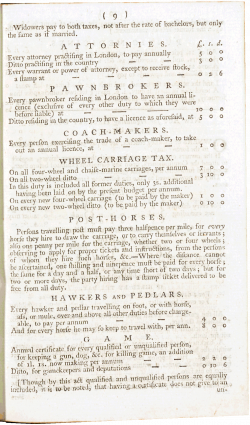 ( 9 )
Widowers pay to both taxes, not after the rate of bachelors, but only
the same as if married.
ATTORNIES. l. s. d.
Every attorney practising in London, to pay annually 5 0 0
Ditto practising in the country 3 0 0
Every warrant or power of attorney, except to receive stock,
a stamp at 0 5 6
PAWNBROKERS.
Every pawnbroker residing in London to have an annual li-
cence (exclusive of every other duty to which they were
before liable) at 10 0 0
Ditto residing in the country, to have a licence as aforesaid, at 5 0 0
COACH-MAKERS.
Every person exercising the trade of a coach-maker, to take
out an annual licence, at 1 0 0
WHEEL CARRIAGE TAX.
On all four-wheel and chaise-marine carriages, per annum 7 0 0
On all two-wheel ditto 3 10 0
In this duty is included all former duties, only 1s. additional
having been laid on by the present budget per annum.
On every new four-wheel carriage (to be paid by the maker) 1 0 0
On every new two-wheel ditto (to be paid by the maker) 0 10 0
POST-HORSES.
Persons travelling post must pay three halfpence per mile, for every
horse they hire to draw the carriage, or to carry themselves or servants;
also one penny per mile for the carriage, whether two or four wheels;
observing to apply for proper tickets and instructions, from the person
of whom they hire such horses, &c.—Where the distance cannot
be ascertained, one shilling and ninepence must be paid for every horse
the same for a day and a half, or any time short of two days; but for
two or more days, the party hiring has a stamp ticket delivered to be
free from all duty.
HAWKERS AND PEDLARS.
Every hawker and pedlar travelling on foot, or with horse,
ass, or mule, over and above all other duties before charge-
able, to pay per annum
And for every horse he may keep to travel with, per ann. 8 0 0
GAME.
Annual certificate for every qualified or unqualified person,
for keeping a gun, dog, &c. for killing game, an addition
of 1l. 1s. now making per annum 2 2 0
Ditto, for gamekeepers and deputations 0 10 6
[Though by this act qualified and unqualified persons are equally
included, it is to be noted, that having a certificate does not give to an
un-